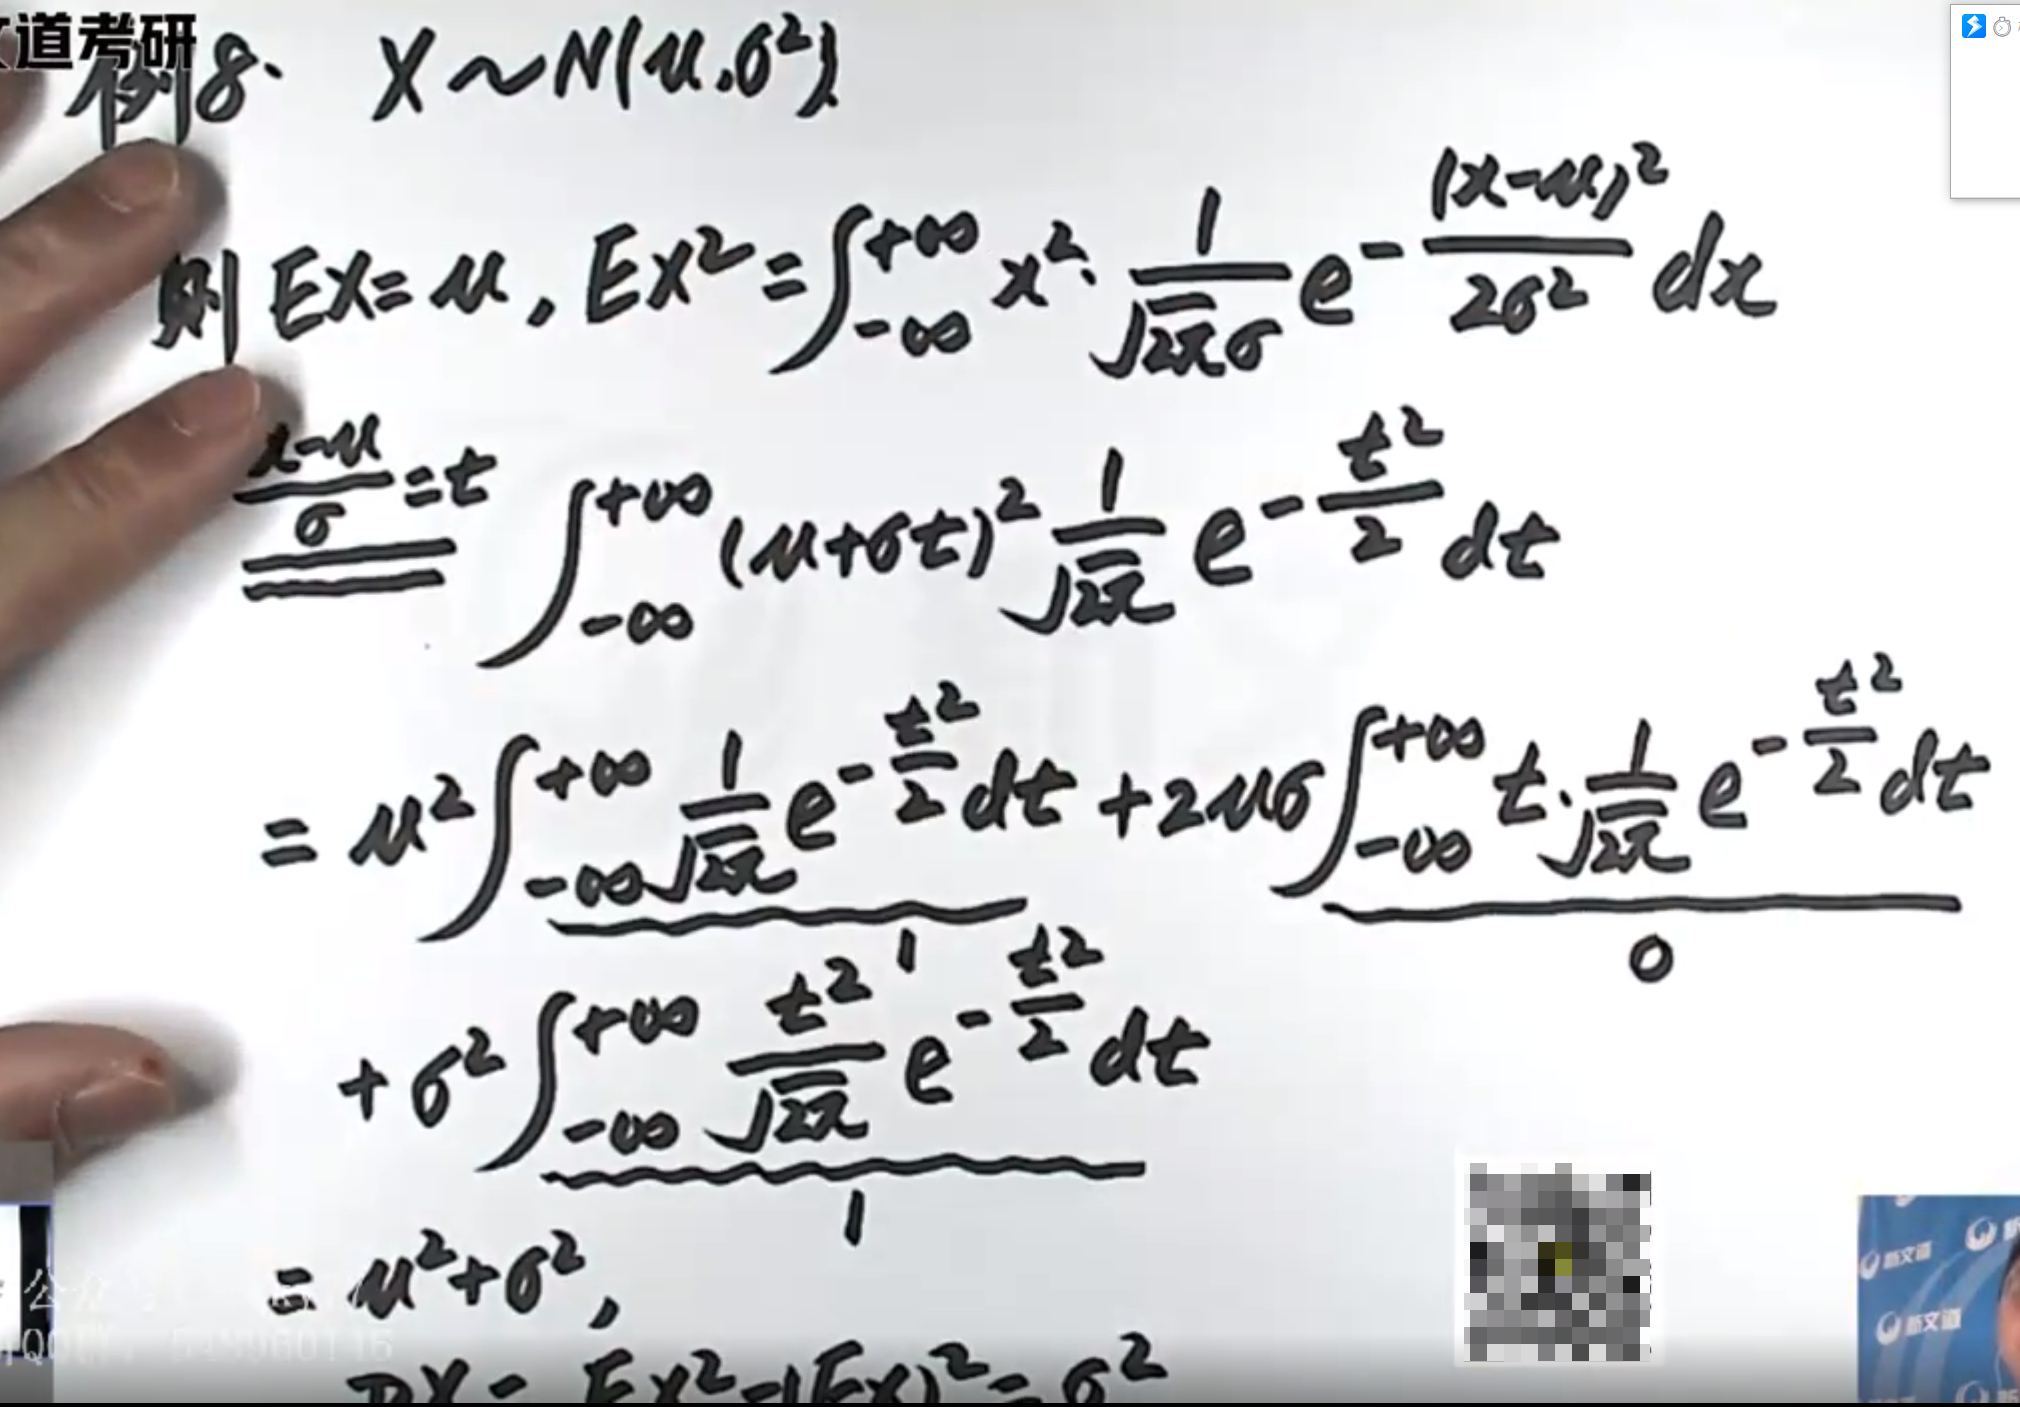 道考研
例8. X~N(μ,σ²).
则 EX=μ, EX²=∫_{-∞}^{+∞} x²·\frac{1}{\sqrt{2π}σ}e^{-\frac{(x-μ)²}{2σ²}}dx
\frac{x-μ}{σ}=t ∫_{-∞}^{+∞}(μ+σt)²\frac{1}{\sqrt{2π}}e^{-\frac{t²}{2}}dt
=μ²∫_{-∞}^{+∞}\frac{1}{\sqrt{2π}}e^{-\frac{t²}{2}}dt+2μσ∫_{-∞}^{+∞}t·\frac{1}{\sqrt{2π}}e^{-\frac{t²}{2}}dt
1 0
+σ²∫_{-∞}^{+∞}\frac{t²}{\sqrt{2π}}e^{-\frac{t²}{2}}dt
1
=μ²+σ²,
DX=EX²-(EX)²=σ²
公众号
新文道
新文道